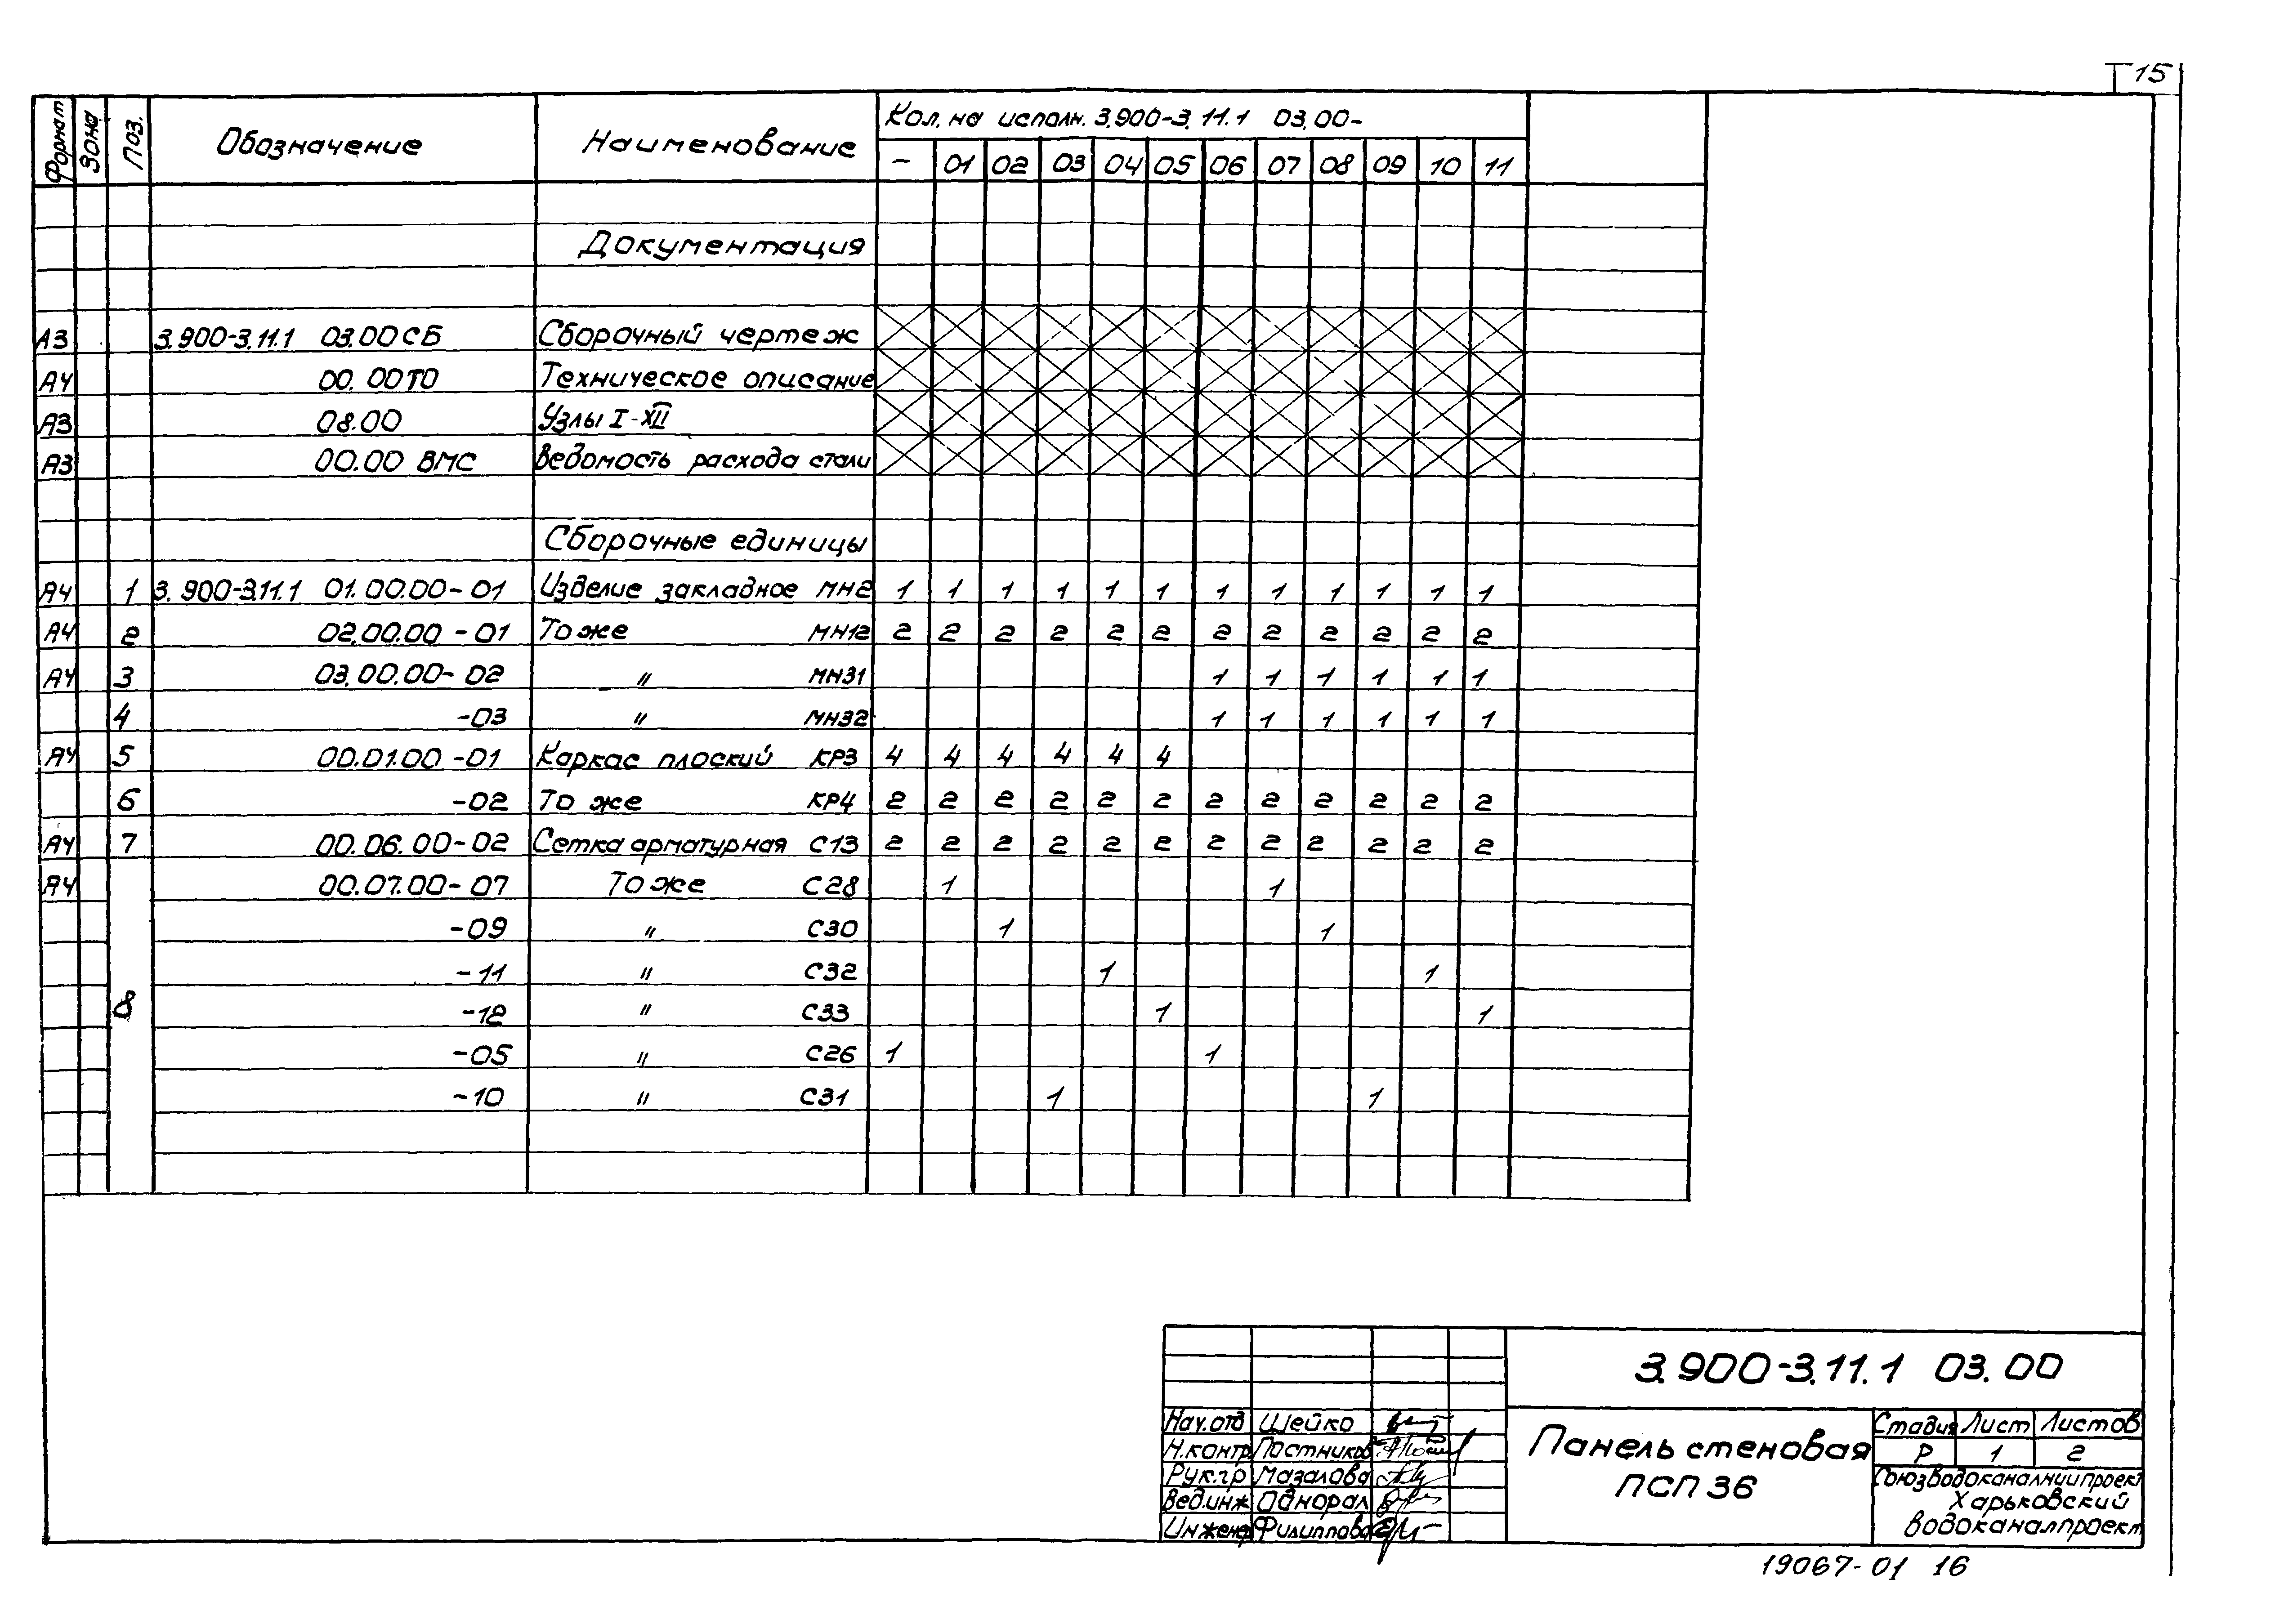 15
Формат Зона Поз. Обозначение Наименование Кол. на исполн. 3.900-3.11.1 03.00-
- 01 02 03 04 05 06 07 08 09 10 11
Документация
А3 3.900-3.11.1 03.00СБ Сборочный чертеж
А4 00.00ТО Техническое описание
А3 08.00 Узлы I-XII
А3 00.00 ВМС Ведомость расхода стали
Сборочные единицы
А4 1 3.900-3.11.1 01.00.00-01 Изделие закладное МН2 1 1 1 1 1 1 1 1 1 1 1 1
А4 2 02.00.00-01 То же МН12 2 2 2 2 2 2 2 2 2 2 2 2
А4 3 03.00.00-02 " МН31 1 1 1 1 1 1
4 -03 " МН32 1 1 1 1 1 1
А4 5 00.01.00-01 Каркас плоский КР3 4 4 4 4 4 4
6 -02 То же КР4 2 2 2 2 2 2 2 2 2 2 2 2
А4 7 00.06.00-02 Сетка арматурная С13 2 2 2 2 2 2 2 2 2 2 2 2
А4 00.07.00-07 То же С28 1 1
-09 " С30 1 1
-11 " С32 1 1
8 -12 " С33 1 1
-05 " С26 1 1
-10 " С31 1 1
3.900-3.11.1 03.00
Нач.отд Шейко
Н.контр Постников
Рук.гр Мазалова
Вед.инж Однорал
Инжен Филиппова
Панель стеновая
ПСП 36
Стадия Лист Листов
Р 1 2
Союзводоканалниипроект
Харьковский
водоканалпроект
19067-01 16